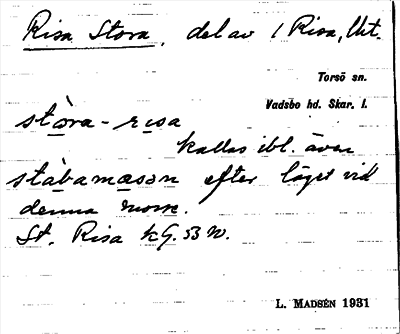 Risa Stora, del av 1 Risa, Ut.
Torsö sn.
Vadsbo hd. Skar. l.
stòra-risa
kallas ibl. även
stàbamåsən efter läget vid
denna mosse.
St. Risa kG. 53 N.
L. MADSÉN 1931